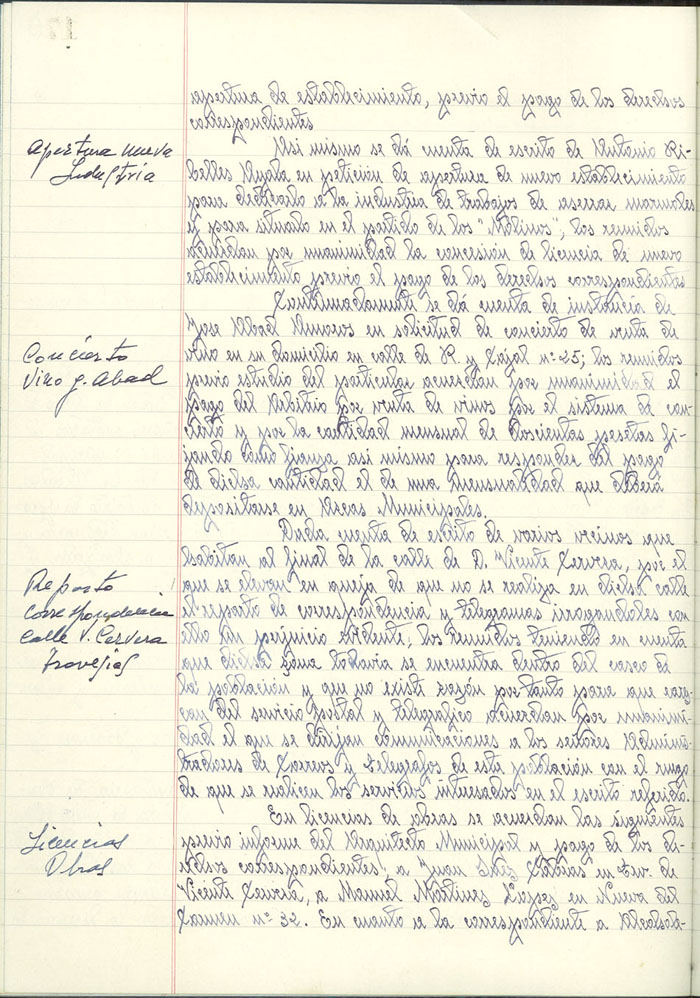 apertura de establecimiento, previo el pago de los derechos
correspondientes
Apertura nueva
Industria
Asi mismo se dá cuenta de escrito de Antonio Ri-
belles Ayala en petición de apertura de nuevo establecimiento
para dedicarlo a la industria de trabajos de aserrar marmoles
y para situarlo en el partido de los "Molinos"; los reunidos
acuerdan por unanimidad la concesión de licencia de nuevo
establecimiento previo el pago de los derechos correspondientes
Continuadamente se dá cuenta de instancia de
Concierto
Vino J. Abad
Jose Abad en solicitud de concierto de venta de
vino en su domicilio en calle de R. y Cajal nº 25; los reunidos
previo estudio del particular acuerdan por unanimidad el
pago del Arbitrio por venta de vinos por el sistema de con-
cierto y por la cantidad mensual de doscientas pesetas fi-
jando como fianza asi mismo para responder del pago
de dicha cantidad el de una mensualidad que deberá
depositarse en Arcas Municipales.
Dada cuenta de escrito de varios vecinos que
habitan al final de la calle de D. Vicente Cervera, por el
Reparto
correspondencia
calle V. Cervera
Travesías
que se elevan en queja de que no se realiza en dicha calle
el reparto de correspondencia y telegramas irrogandoles con
ello un perjuicio evidente; los reunidos teniendo en cuenta
que dicha zona todavia se encuentra dentro del casco de
la población y que no existe razón por tanto para que carez-
can del servicio postal y telegrafico acuerdan por unanimi-
dad el que se dirijan comunicaciones a los señores Adminis-
tradores de Correos y Telegrafos de esta población con el ruego
de que se realicen los servicios interesados en el escrito referido.
Licencias
Obras
En licencias de obras se acuerdan las siguientes
previo informe del Arquitecto Municipal y pago de los de-
rechos correspondientes: a Juan en Trv. de
Vicente Cervera, a Manuel Martinez Lopez en Nueva del
Carmen nº 32. En cuanto a la correspondiente a